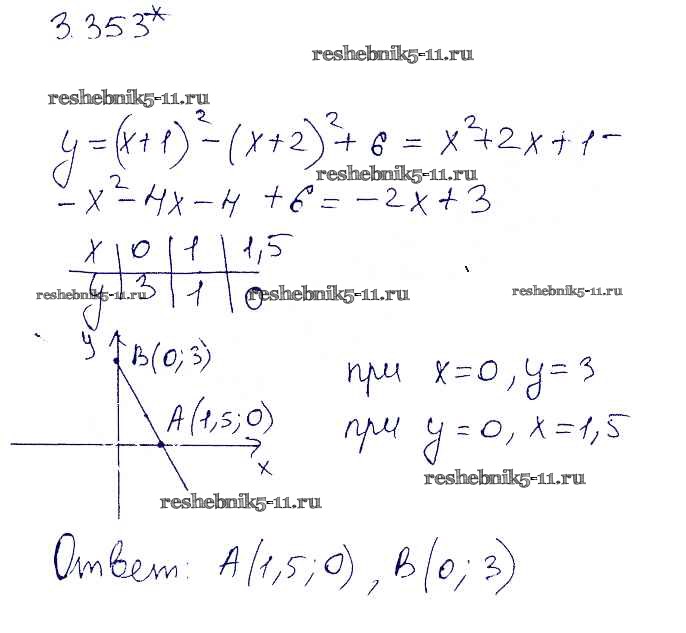 3.353*
reshebnik5-11.ru
reshebnik5-11.ru
y=(x+1)²-(x+2)²+6=x²+2x+1-
reshebnik5-11.ru
-x²-4x-4+6=-2x+3
x 0 1 1,5
y 3 1 0
reshebnik5-11.ru reshebnik5-11.ru reshebnik5-11.ru
y B(0;3)
при x=0, y=3
A(1,5;0)
при y=0, x=1,5
x
reshebnik5-11.ru
reshebnik5-11.ru
Ответ: A(1,5;0), B(0;3)